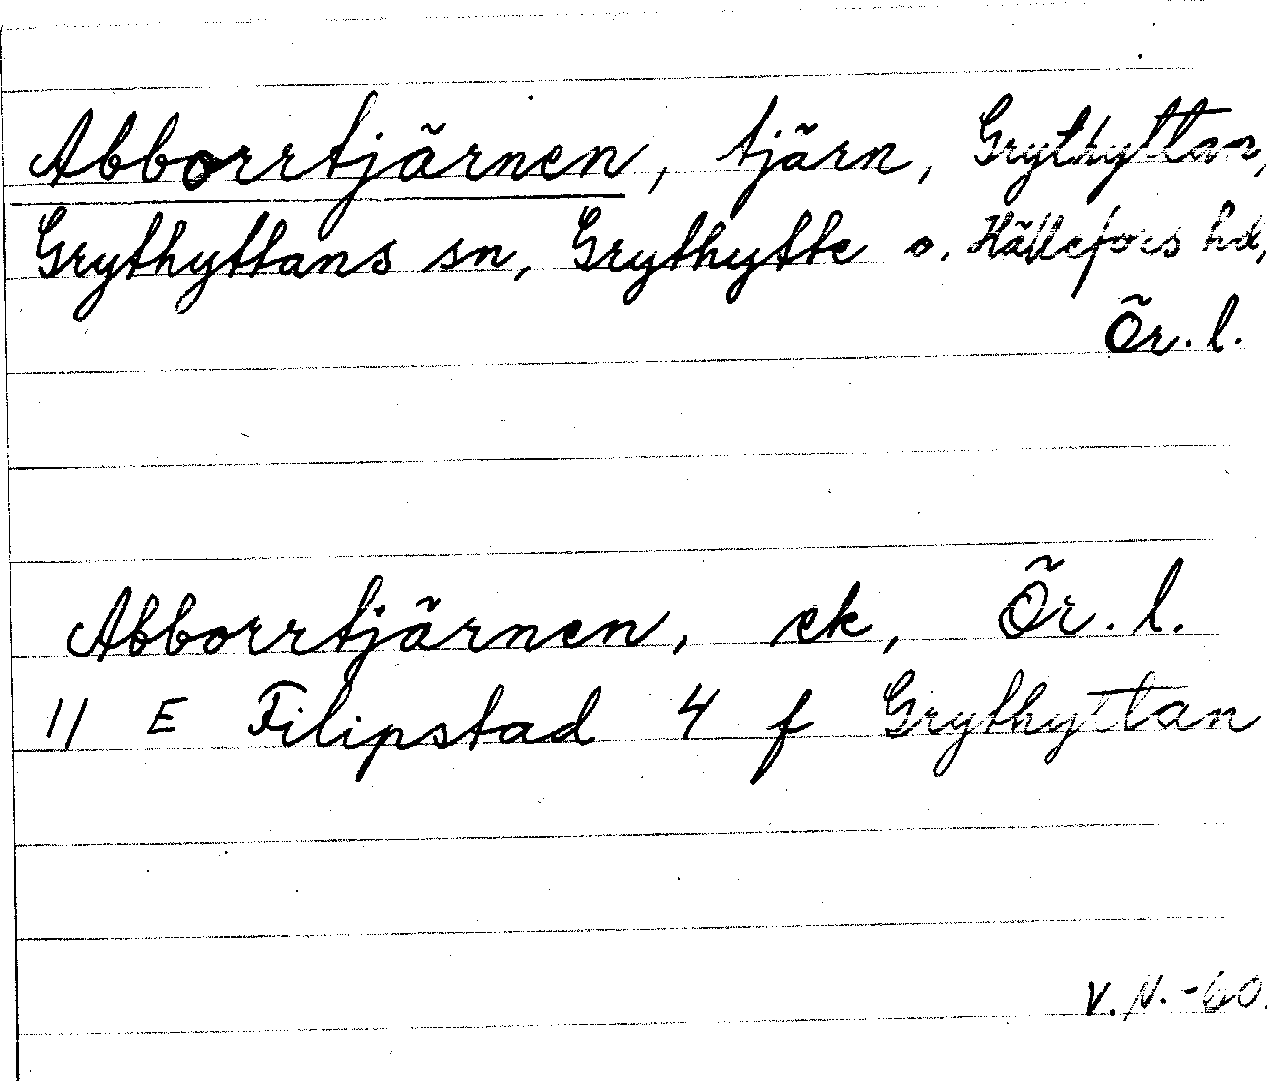 Abborrtjärnen, tjärn, Grythyttan,
Grythyttans sn, Grythytte o. Hällefors hd,
Ör. l.
Abborrtjärnen, ek, Ör. l.
11 E Filipstad 4 f Grythyttan
V. N. -60.